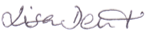 Lisa Dent